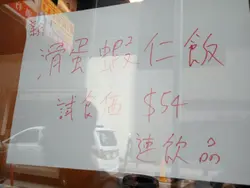 滑蛋蝦仁飯
試食價 $54
連飲品